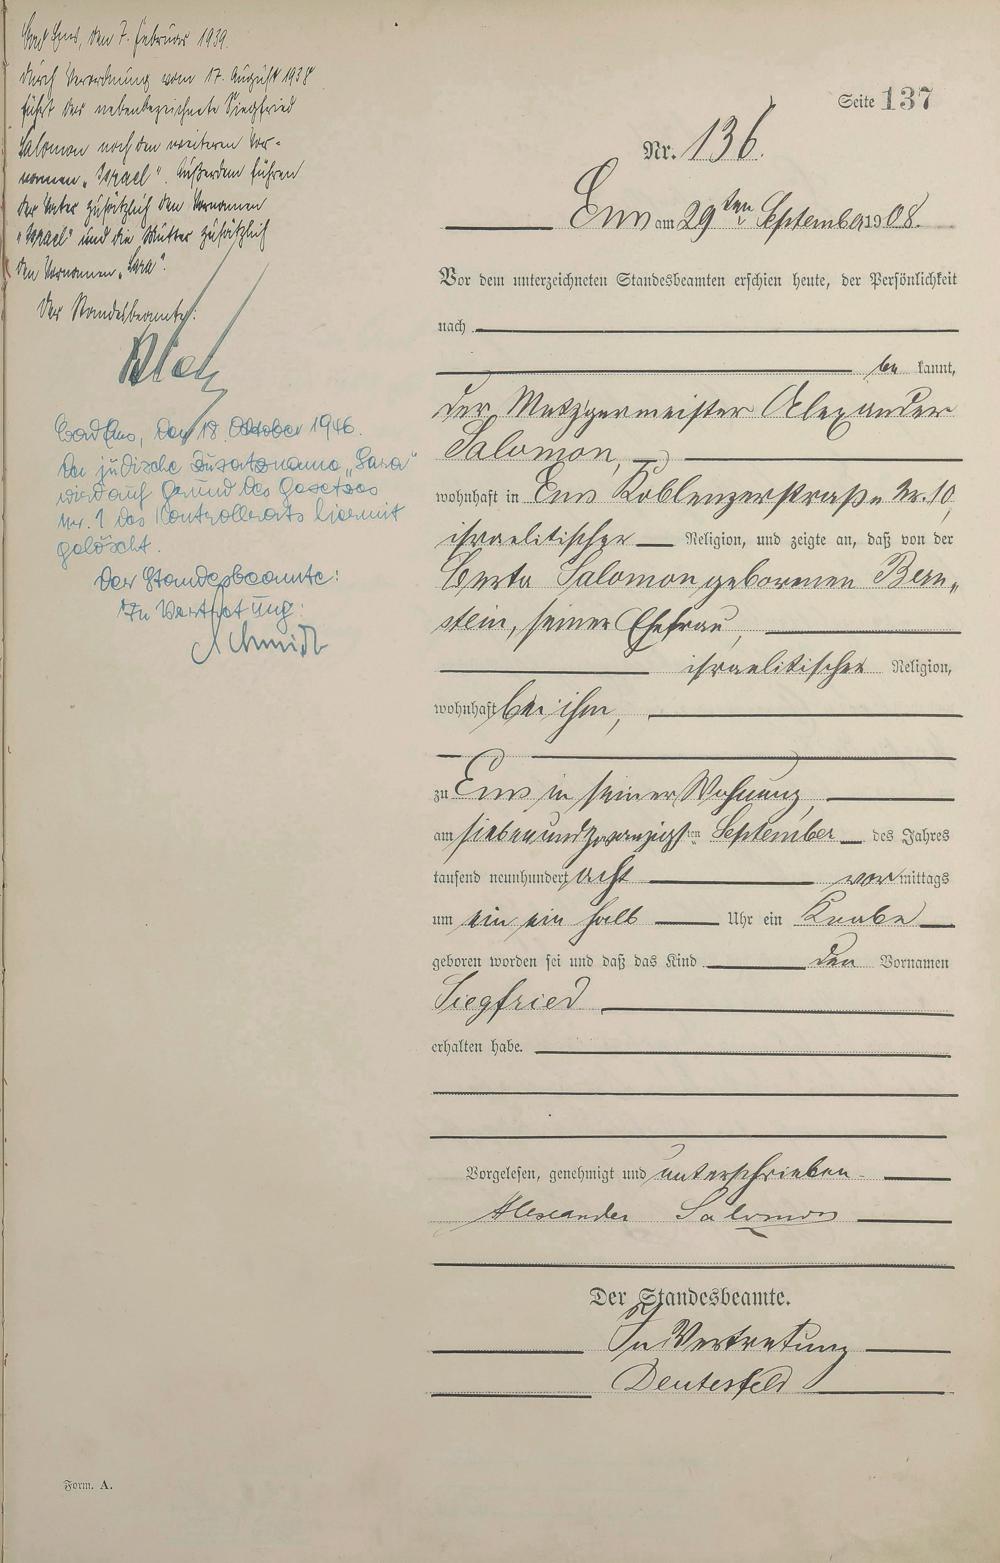 Bad Ems, den 7. Februar 1939.
Durch Verordnung vom 17. August 1938
führt der nebenbezeichnete Siegfried
Salomon noch den weiteren Vor-
namen „Israel“. Außerdem führen
der Vater zusätzlich den Vornamen
„Israel“ und die Mutter zusätzlich
den Vornamen „Sara“.
Der Standesbeamte:
Bad Ems, den 18. Oktober 1946.
Der jüdische Zusatzname „Sara“
wird auf Grund des Gesetzes
Nr. 1 des Kontrollrats hiermit
gelöscht.
Der Standesbeamte:
In Vertretung:
Schmidt
Seite 137
Nr. 136.
Ems am 29ten September 1908.
Vor dem unterzeichneten Standesbeamten erschien heute, der Persönlichkeit
nach
be kannt,
der Metzgermeister Alexander
Salomon,
wohnhaft in Ems Koblenzerstraße Nr. 10,
israelitischer Religion, und zeigte an, daß von der
Berta Salomon geborenen Bern„
stein, seiner Ehefrau,
israelitischer Religion,
wohnhaft bei ihm,
zu Ems in seiner Wohnung,
am siebenundzwanzigsten September des Jahres
tausend neunhundert acht vormittags
um ein ein halb Uhr ein Knabe
geboren worden sei und daß das Kind den Vornamen
Siegfried
erhalten habe.
Vorgelesen, genehmigt und unterschrieben
Alexander Salomon
Der Standesbeamte.
In Vertretung
Deutesfeld
Form. A.